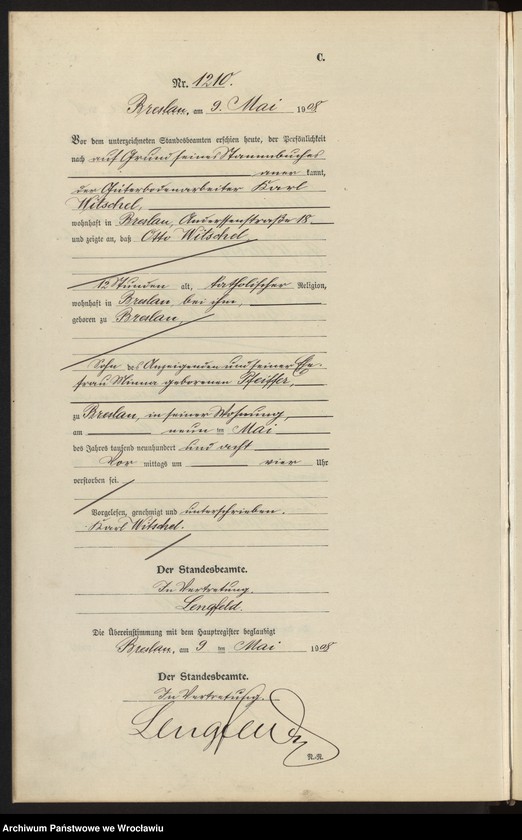 C.
Nr. 1210.
Breslau, am 9. Mai 1908
Vor dem unterzeichneten Standesbeamten erschien heute, der Persönlichkeit
nach auf Grund seines Stammbuches
aner kannt,
der Güterbodenarbeiter Karl
Witschel,
wohnhaft in Breslau, Anderssenstraße 18
und zeigte an, daß Otto Witschel,
12 Stunden alt, katholischer Religion,
wohnhaft in Breslau, bei ihm,
geboren zu Breslau,
Sohn des Anzeigenden und seiner Ehe-
frau Minna geborenen Pfeiffer,
zu Breslau, in seiner Wohnung,
am neun ten Mai
des Jahres tausend neunhundert und acht
Vor mittags um vier Uhr
verstorben sei.
Vorgelesen, genehmigt und unterschrieben.
Karl Witschel.
Der Standesbeamte.
In Vertretung.
Lengfeld.
Die Übereinstimmung mit dem Hauptregister beglaubigt
Breslau, am 9 ten Mai 1908
Der Standesbeamte.
In Vertretung.
Lengfeld
N.N.
Archiwum Państwowe we Wrocławiu